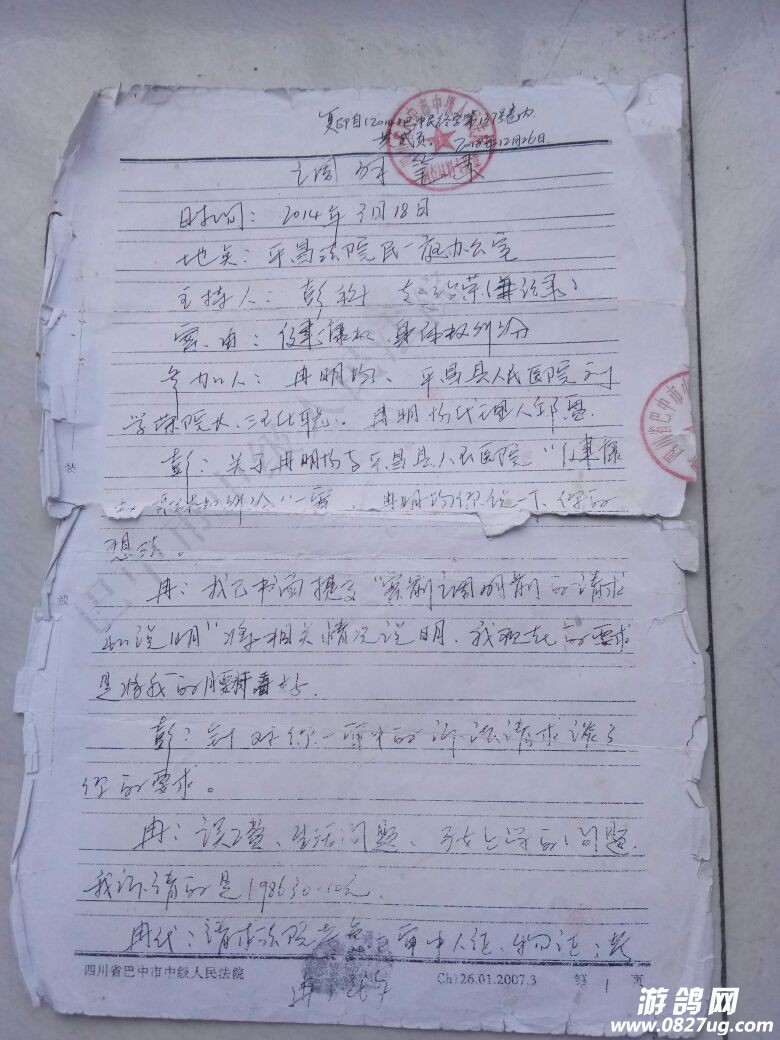 复印自(2014)巴中民终字第137号卷内
共贰页。 2018年12月26日
调解笔录
时间：2014年3月18日
地点：平昌法院民一庭办公室
主持人：彭 (兼记录)
案由：健康权、身体权纠纷
参加人：冉明 、平昌县人民医院刘
学 院长、 。冉明 代理人邱
彭：关于冉明 与平昌县人民医院“健康
纠纷”一案，冉明 你说一下，你的
想法。
冉：我已书面提交“ 的请求
和说明”将相关情况说明，我现在的要求
是将我的腰 看好。
彭：针对你一审中的诉讼请求谈谈
你的要求。
冉：误工费、生活问题、子女上学的问题，
我诉请的是198630.10元。
冉代：请求法院 审中人证、物证；
四川省巴中市中级人民法院 Ch126.01.2007.3 第 1 页
装
线
四川省巴中市
游鸽网
www.0827ug.com